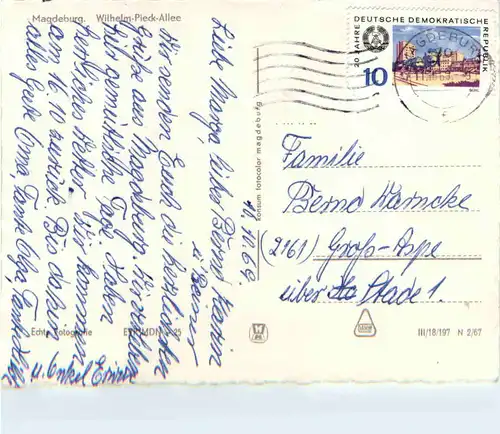 Magdeburg. Wilhelm-Pieck-Allee
10.10.69.
Liebe Marga, lieber Bernd, Karin
u. Reiner
Wir senden Euch die herzlichen
Grüße aus Magdeburg. Wir erleben
hier gemütliche Tage, haben
herrliches Wetter. Wir kommen
am 16.10 zurück. Bis dahin
alles Gute Oma, Tante Olga, Tante
u. Onkel Erwin
Echte Fotografie
konsum fotocolor magdeburg
20 JAHRE
DEUTSCHE DEMOKRATISCHE
REPUBLIK
10
MAGDEBURG
Familie
Bernd Warncke
(2161) Groß-Aspe
über Stade 1.
III/18/197 N 2/67